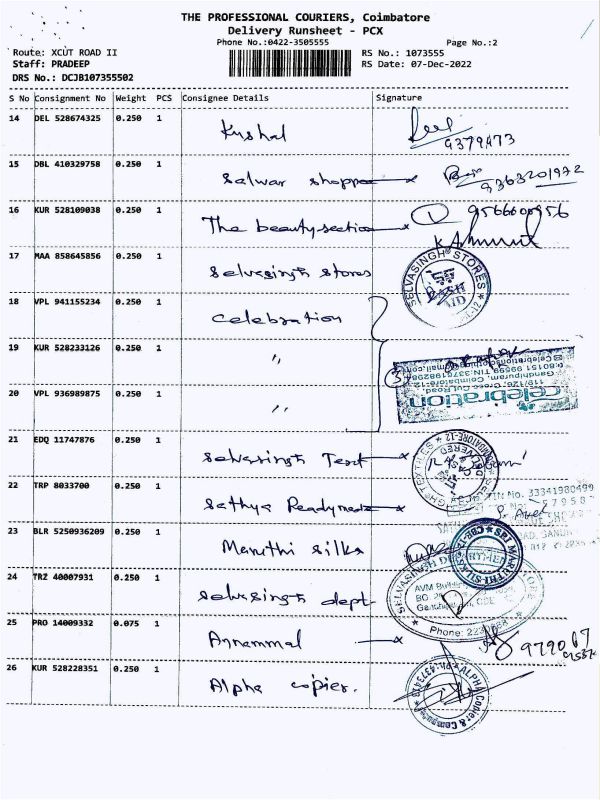 THE PROFESSIONAL COURIERS, Coimbatore
Delivery Runsheet - PCX
Phone No.:0422-3505555
Page No.:2
Route: XCUT ROAD II
RS No.: 1073555
Staff: PRADEEP
RS Date: 07-Dec-2022
DRS No.: DCJB107355502
S No Consignment No Weight PCS Consignee Details Signature
14 DEL 528674325 0.250 1 Kushal
9379473
15 DBL 410329758 0.250 1 Salwar shoppe
9363201972
16 KUR 528109038 0.250 1 The beauty section
1
17 MAA 858645856 0.250 1 Selvasingh stores
SELVASINGH STORES
18 VPL 941155234 0.250 1 Celebration
19 KUR 528233126 0.250 1 "
3
celebration
Gandhipuram, Coimbatore-12.
20 VPL 936989875 0.250 1 "
21 EDQ 11747876 0.250 1 Selvasingh Text
22 TRP 8033700 0.250 1 Sathya Readymade
TIN No. 33341980499
23 BLR 5250936209 0.250 1 Maruthi silks
SRI MARUTHI SILKS
CBE-12
24 TRZ 40007931 0.250 1 Selvasingh dept
SELVASINGH DEPARTMENT
AVM Building
25 PRO 14009332 0.075 1 Annammal
26 KUR 528228351 0.250 1 Alpha copier.
ALPHA Copier & Computer